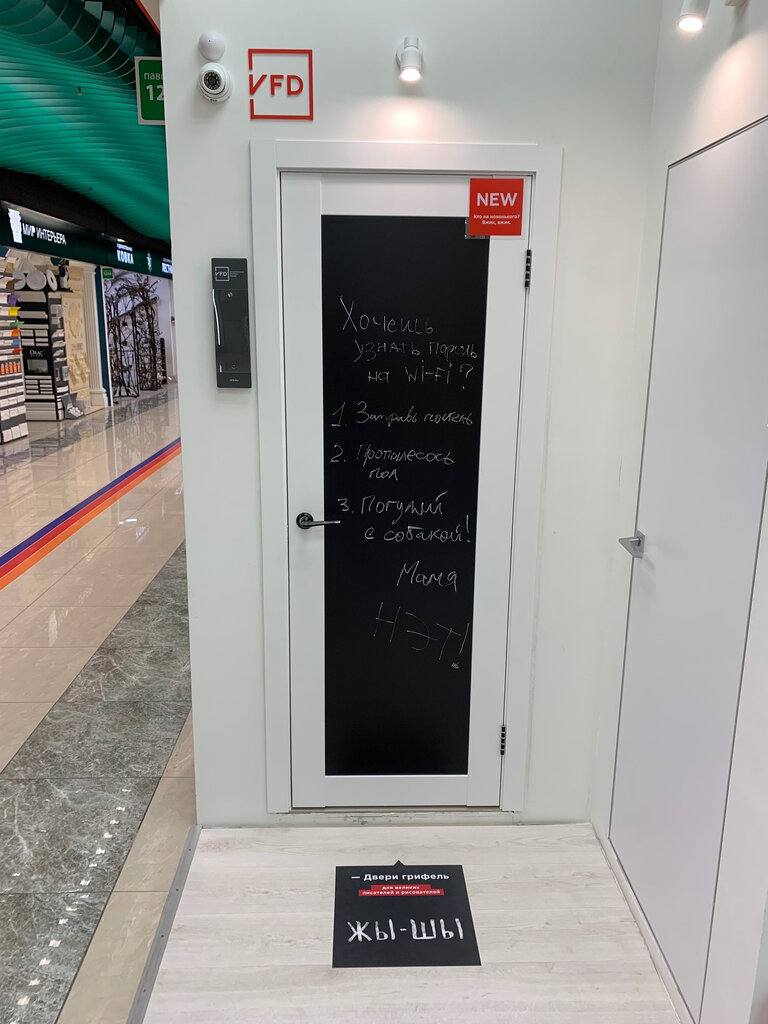 VFD
пав
12
МИР ИНТЕРЬЕРА
КОВКА
NEW
Кто на новенького?
Вжик, вжик.
VFD
Хочешь
узнать пароль
на Wi-Fi?
1. Заправь постель
2. Пропылесось
пол
3. Погуляй
с собакой!
Мама
НЭТ!
— Двери грифель
для великих
писателей и рисователей
ЖЫ-ШЫ